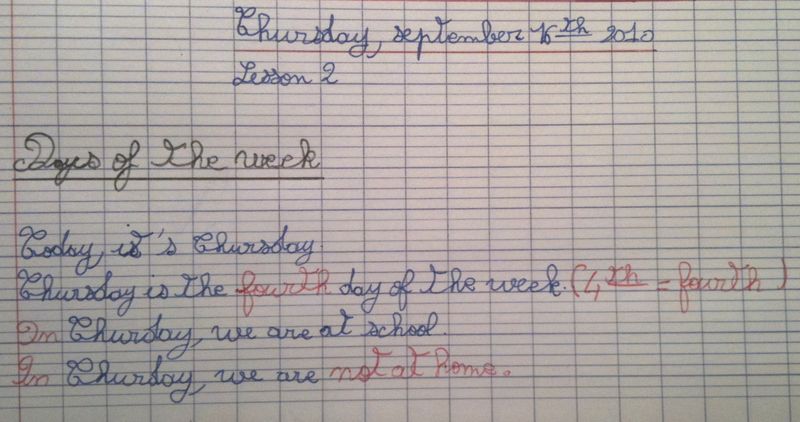 Thursday, september 16th 2010
Lesson 2
Days of the week
Today, it's Thursday.
Thursday is the fourth day of the week. (4th = fourth)
On Thurday, we are at school.
On Thurday, we are not at home.